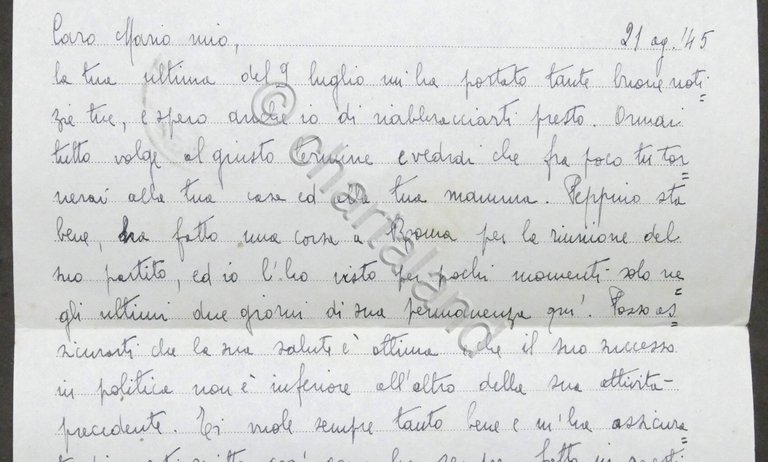 Caro Mario mio, 21 ag. '45
la tua ultima del 9 luglio mi ha portato tante buone noti=
zie tue, e spero anche io di riabbracciarti presto. Ormai
tutto volge al giusto termine e vedrai che fra poco tu tor=
nerai alla tua casa ed alla tua mamma. Peppino sta
bene, ha fatto una corsa a Roma per la riunione del
suo partito, ed io l'ho visto per pochi momenti solo ne=
gli ultimi due giorni di sua permanenza qui'. Posso as=
sicurarti che la sua salute è ottima e che il suo successo
in politica non è inferiore all'altro della sua attività
precedente. Ti vuole sempre tanto bene e m'ha assicura=
© chartaland